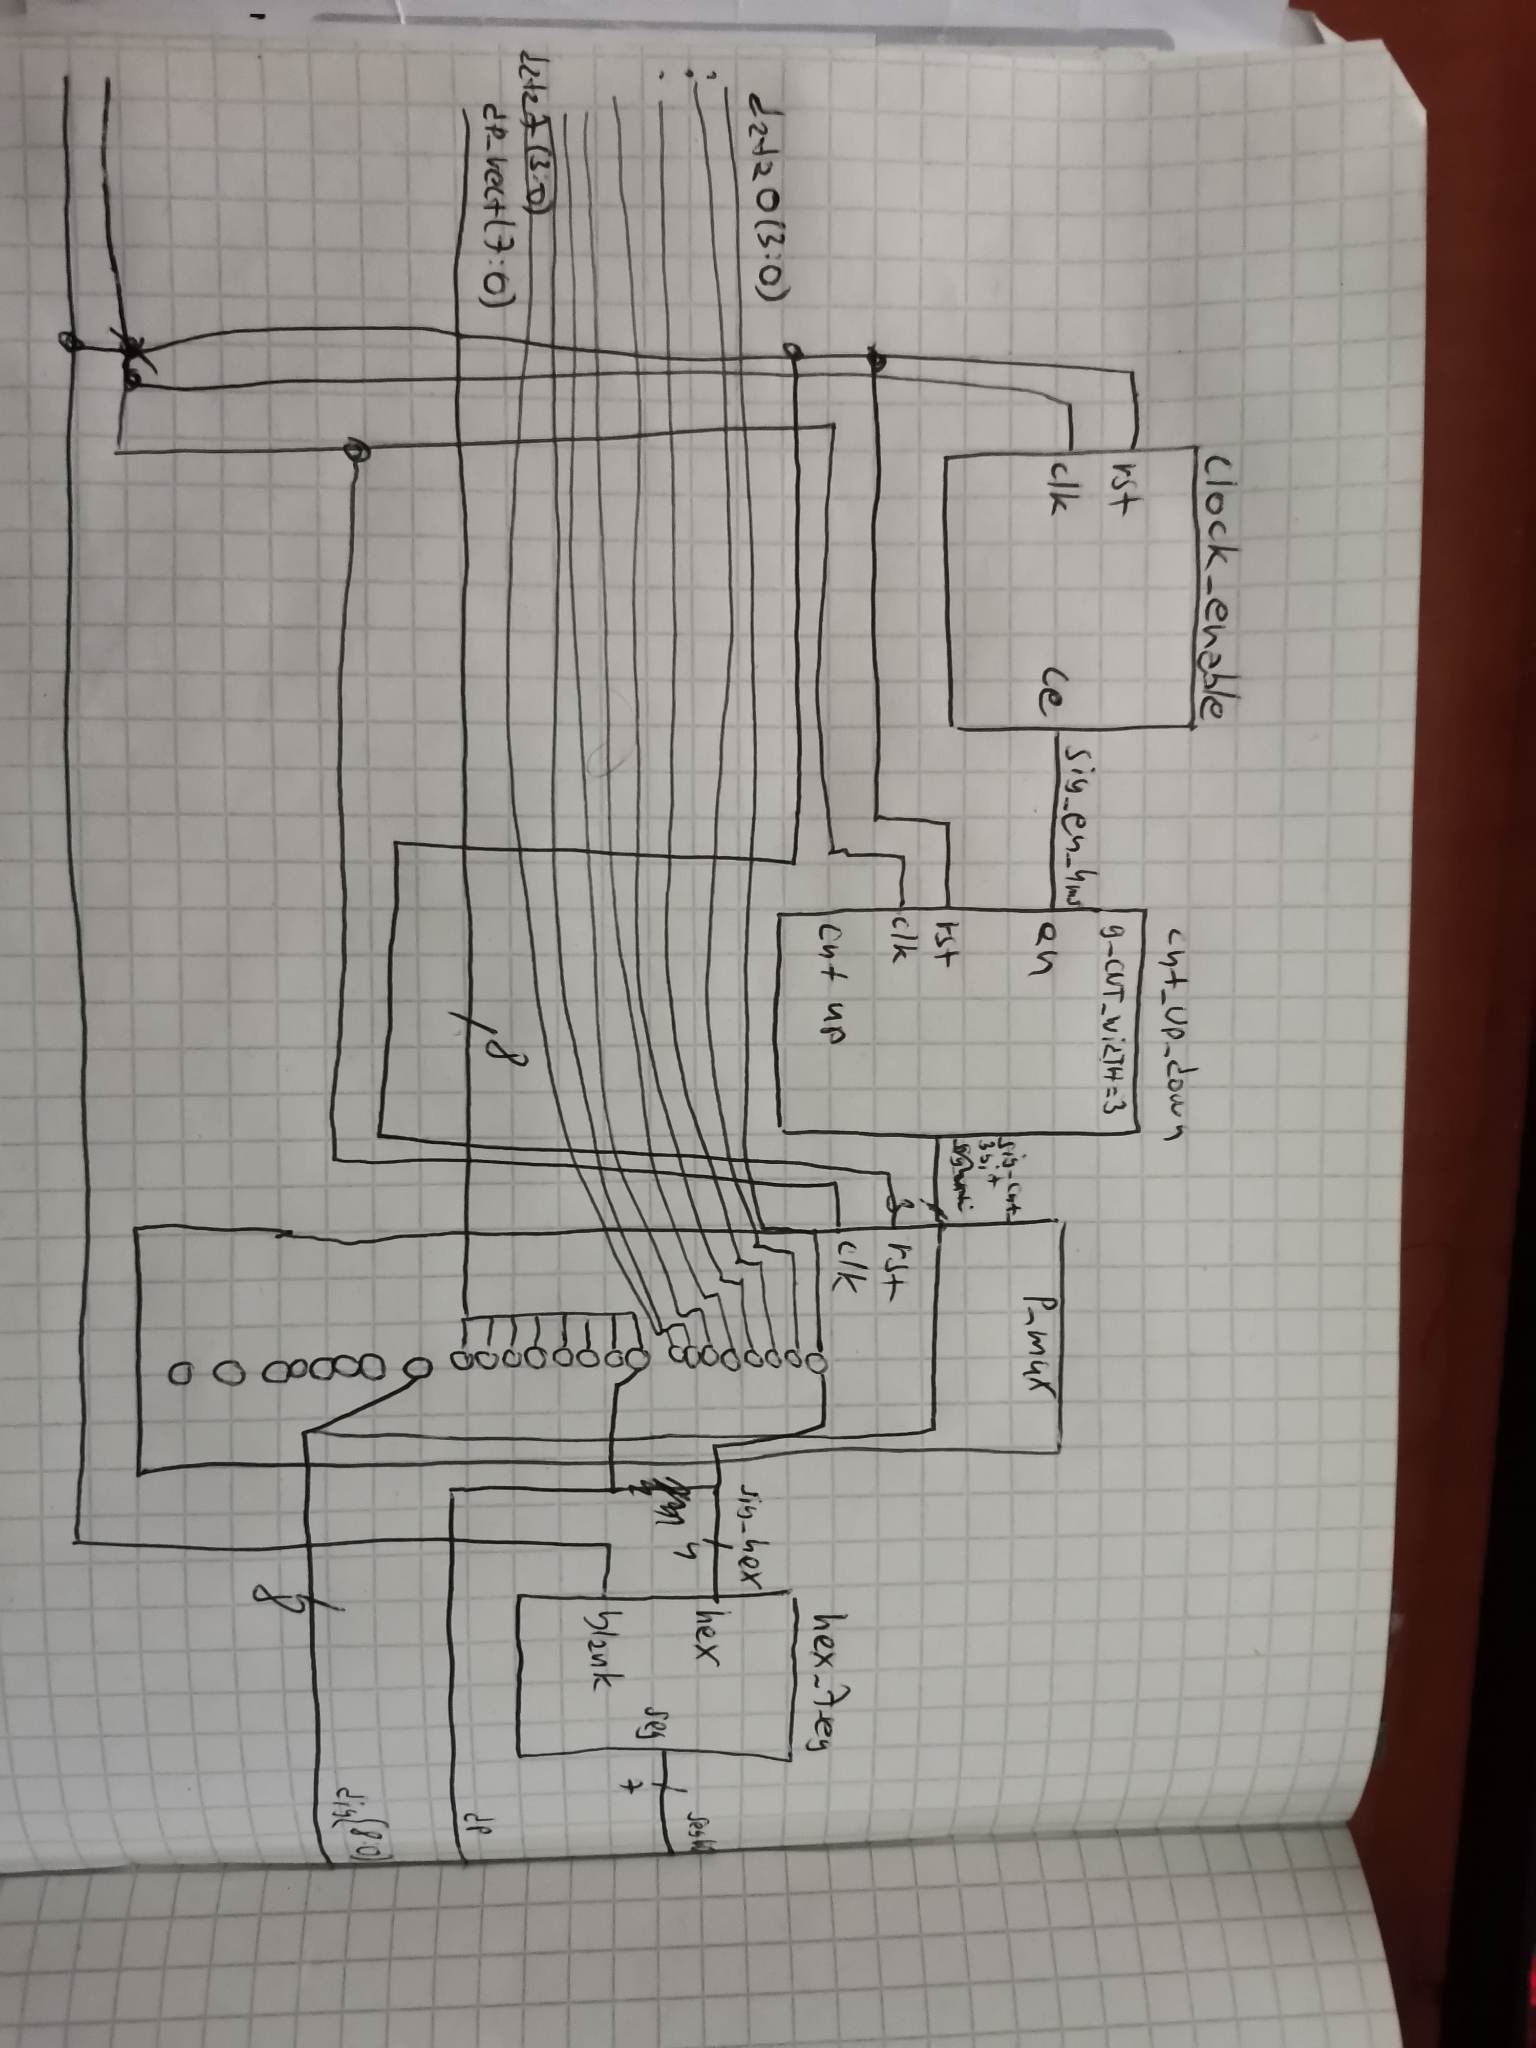 clock_enable
rst
clk
ce
sig_en_4ms
cnt_up_down
g-CNT_WIDTH=3
en
rst
clk
cnt up
sig-cnt-
3bit
3
P_mux
rst
clk
data0(3:0)
data7(3:0)
dp_vect(7:0)
8
hex_7seg
sig_hex
4
hex
seg
7
blank
dp
dig(8:0)
8